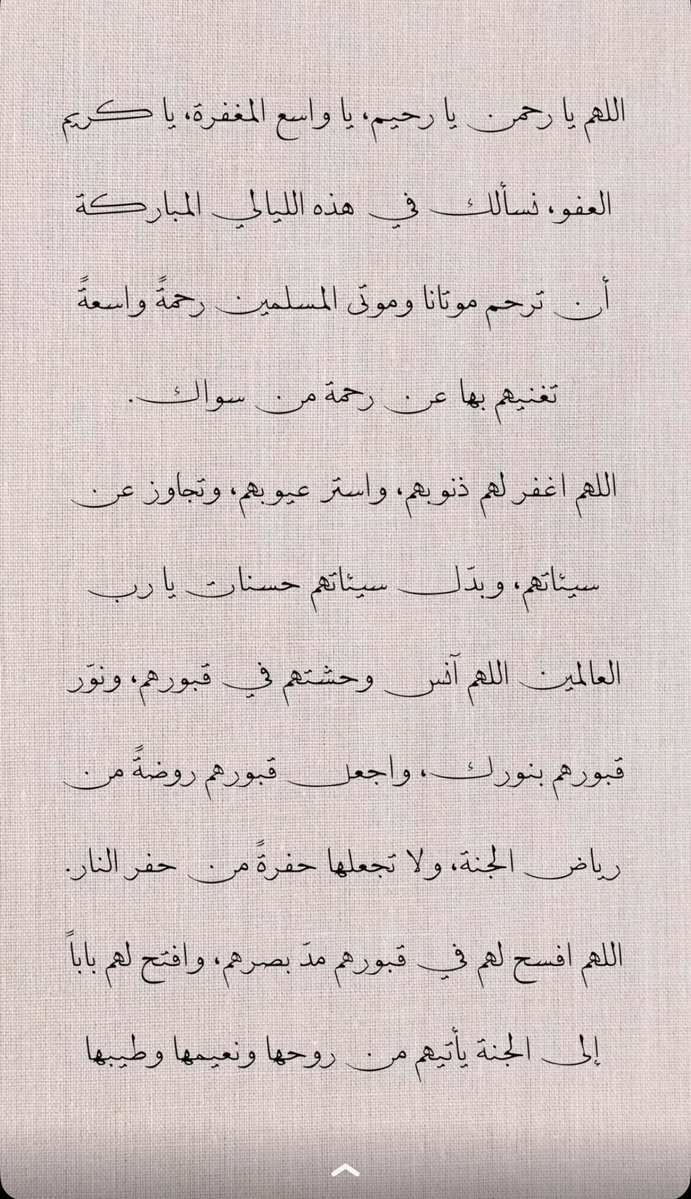 اللهم يا رحمن يا رحيم، يا واسع المغفرة، يا كريم
العفو، نسألك في هذه الليالي المباركة
أن ترحم موتانا وموتى المسلمين رحمةً واسعةً
تغنيهم بها عن رحمة من سواك.
اللهم اغفر لهم ذنوبهم، واستر عيوبهم، وتجاوز عن
سيئاتهم، وبدّل سيئاتهم حسنات يا رب
العالمين اللهم آنس وحشتهم في قبورهم، ونوّر
قبورهم بنورك، واجعل قبورهم روضةً من
رياض الجنة، ولا تجعلها حفرةً من حفر النار.
اللهم افسح لهم في قبورهم مدّ بصرهم، وافتح لهم باباً
إلى الجنة يأتيهم من روحها ونعيمها وطيبها